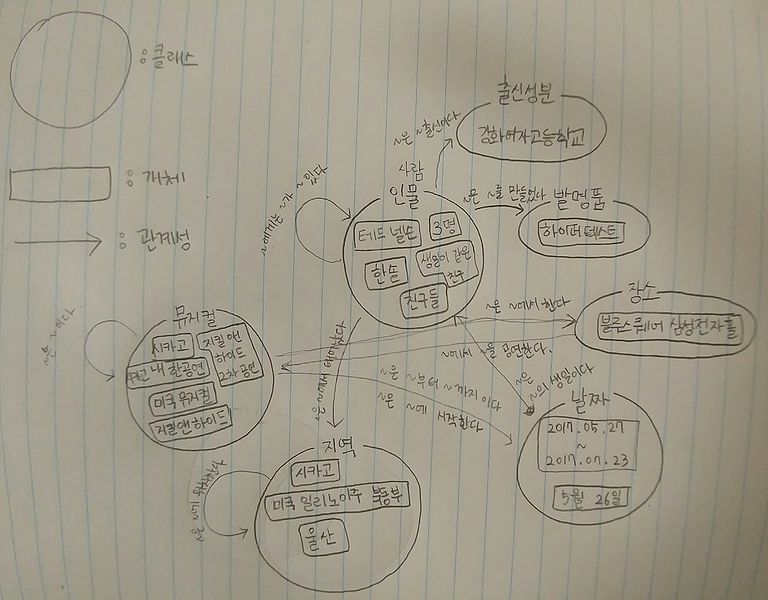 : 클래스
: 개체
: 관계성
출신성분
강화여자고등학교
~은 ~출신이다
사람
인물
테드 넬슨
3명
한솔
생일이 같은
친구
친구들
~에게는 ~가 ~있다
~은 ~를 만들었다
발명품
하이퍼텍스트
장소
블루스퀘어 삼성전자홀
~은 ~에서 한다
~에서 ~을 공연한다.
~은
~의 생일이다
날짜
2017.05.27
~
2017.07.23
5월 26일
~은 ~부터 ~까지이다
~은 ~에 시작한다
~은 ~에서 태어났다
뮤지컬
시카고
지킬앤
하이드
2차 공연
내한공연
미국 뮤지컬
지킬앤하이드
~은 ~이다
지역
시카고
미국 일리노이주 북동부
울산
~은 ~에 위치한다